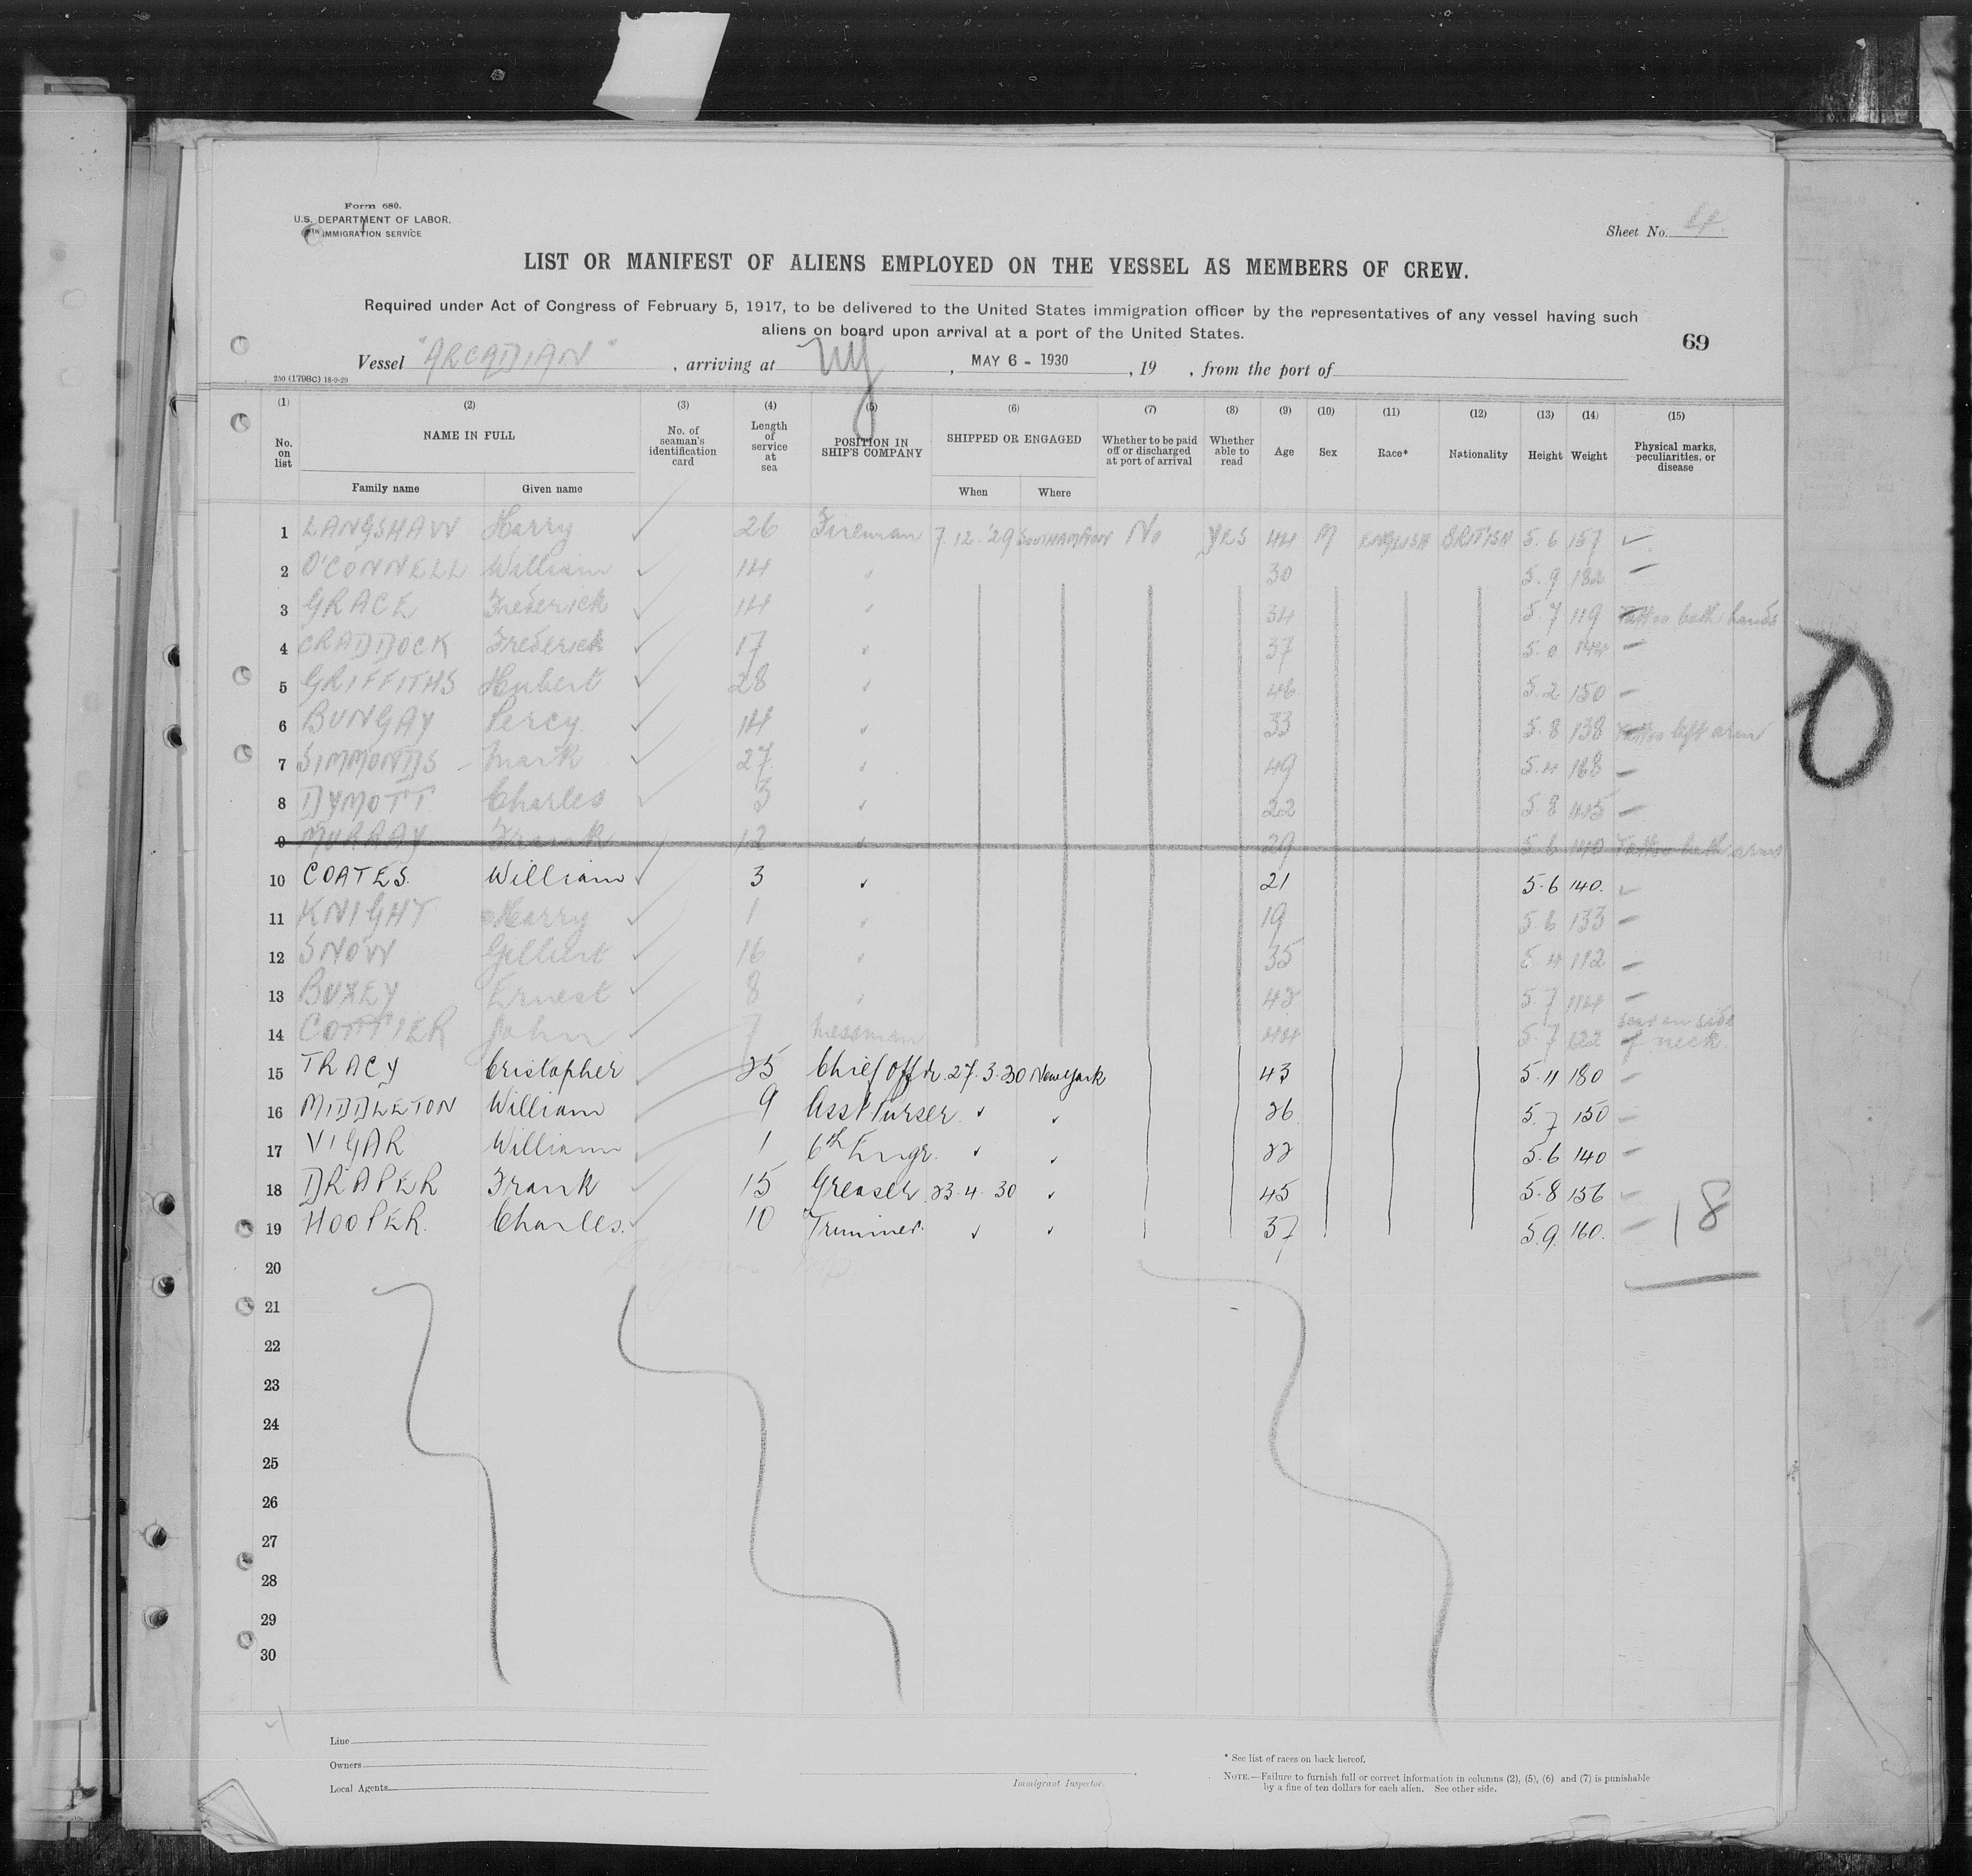 Form 680.
U.S. DEPARTMENT OF LABOR.
IMMIGRATION SERVICE
Sheet No.
LIST OR MANIFEST OF ALIENS EMPLOYED ON THE VESSEL AS MEMBERS OF CREW.
Required under Act of Congress of February 5, 1917, to be delivered to the United States immigration officer by the representatives of any vessel having such
aliens on board upon arrival at a port of the United States.
69
Vessel "ARCADIAN", arriving at Ny, MAY 6 - 1930, 19 , from the port of
250 (1798C) 18-9-29
(1) (2) (3) (4) (5) (6) (7) (8) (9) (10) (11) (12) (13) (14) (15)
No. on list NAME IN FULL No. of seaman's identification card Length of service at sea POSITION IN SHIP'S COMPANY SHIPPED OR ENGAGED Whether to be paid off or discharged at port of arrival Whether able to read Age Sex Race* Nationality Height Weight Physical marks, peculiarities, or disease
Family name Given name When Where
1 LANGSHAW Harry 26 Fireman 7.12.'29 SOUTHAMPTON No YES 44 M ENGLISH BRITISH 5.6 157
2 O'CONNELL William 14 " 30 5.9 182
3 GRACE Frederick 14 " 34 5.7 119 Tattoo both hands
4 CRADDOCK Frederick 17 " 37 5.0 144
5 GRIFFITHS Hubert 28 " 46 5.2 150
6 BUNGAY Percy 14 " 33 5.8 138 Tattoo left arm
7 SIMMONDS Mark 27 " 49 5.4 168
8 DYMOTT Charles 3 " 22 5.8
9 MURRAY Frank 12 " 29 5.6 140 Tattoo both arms
10 COATES. William 3 " 21 5.6 140.
11 KNIGHT Harry 1 " 19 5.6 133
12 SNOW Gilbert 16 " 35 5.4 112
13 BUXEY Ernest 8 " 42 5.7 114
14 COTTIER John 7 Messman 44 5.7 122 Scar on side of neck
15 TRACY Cristopher 25 Chief Offr. 27.3.30 New York 43 5.11 180
16 MIDDLETON William 9 Asst Purser. " " 26 5.7 150
17 VIGAR William 1 6th Engr. " " 22 5.6 140
18 DRAPER Frank 15 Greaser 23.4.30 " 45 5.8 156
19 HOOPER. Charles. 10 Trimmer. " " 37 5.9. 160.
18
20
21
22
23
24
25
26
27
28
29
30
Line
Owners
Local Agents
Immigrant Inspector.
* See list of races on back hereof.
NOTE.—Failure to furnish full or correct information in columns (2), (5), (6) and (7) is punishable
by a fine of ten dollars for each alien. See other side.